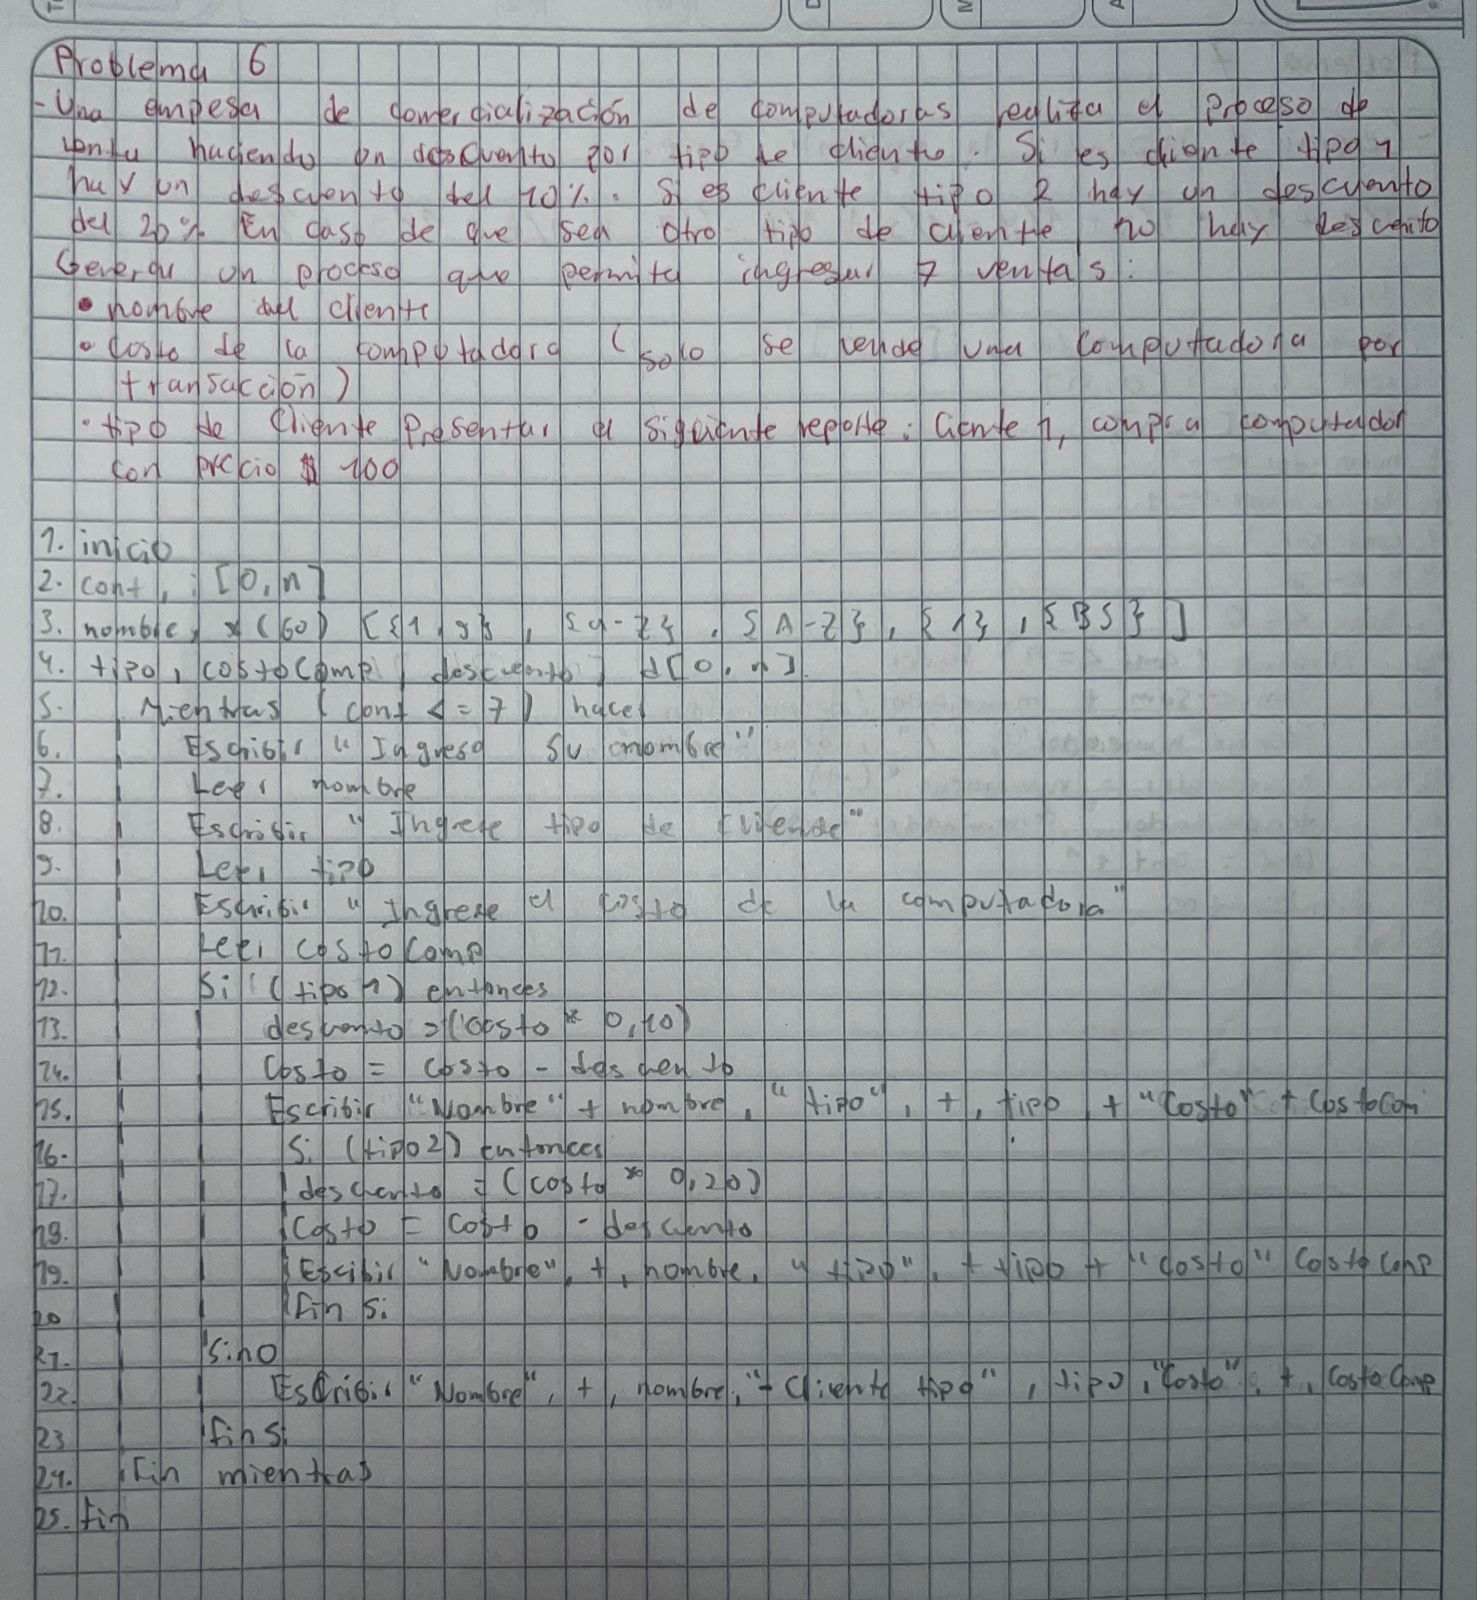 Problema 6
- Una empesa de comercialización de computadoras realiza el proceso de
venta haciendo un descuento por tipo de cliente. Si es cliente tipo 1
hay un descuento del 10%. Si es cliente tipo 2 hay un descuento
del 20% En caso de que sea otro tipo de cliente no hay descento
Generar un proceso que permita ingresar 7 ventas:
• nombre del cliente
• Costo de la computadora (solo se vende una computadora por
transacción)
• tipo de Cliente Presentar el siguiente reporte: Ciente 1, compra computador
con precio $ 100
1. inicio
2. cont, i [0,n]
3. nombre, x(60) [{1,9}, {a-z}, {A-Z}, {1}, {BS}]
4. tipo, costoComp, descuento, d[0,n].
5. Mientras (cont <= 7) hacer
6. Escribir "Ingresa su nombre"
7. Leer nombre
8. Escribir "Ingrese tipo de
9. Leer tipo
10. Escribir "Ingrese el costo de la computadora"
11. Leer costoComp
12. Si (tipo 1) entonces
13. descuento = (costo * 0,10)
14. Costo = costo - descuento
15. Escribir "Nombre" + nombre, "tipo", +, tipo + "Costo" + Costocom
16. Si (tipo 2) entonces
17. descuento = (costo * 0,20)
18. Costo = costo - descuento
19. Escibir "Nombre", +, nombre, "tipo", + tipo + "costo" CostoComp
20 Fin si
21. Sino
22. Escribir "Nombre", +, nombre, "+ Cliente tipo", tipo, "Costo", +, CostoComp
23 fin si
24. Fin mientras
25. fin